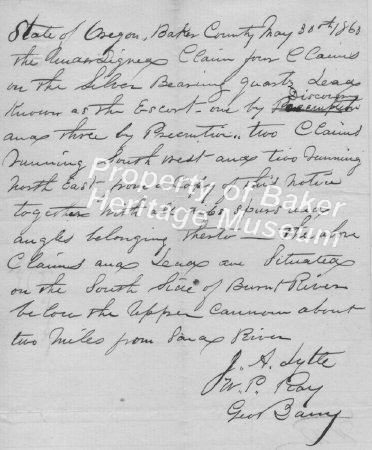 State of Oregon, Baker County May 30th 1863
the Undersigned Claim four Claims
on the Silver Bearing quartz Lead
Known as the Escort one by Discovery
and three by Preemtion. two Claims
running South West and two running
North East from a copy of this notice
together with all dips spurs and
angles belonging therto — the above
Claims and Lead are Situated
on the South Side of Burnt River
below the Upper Cannon about
two Miles from Said River
J. A. Lytle
W. P. Ray
Geo Barry
Property of Baker
Heritage Museum